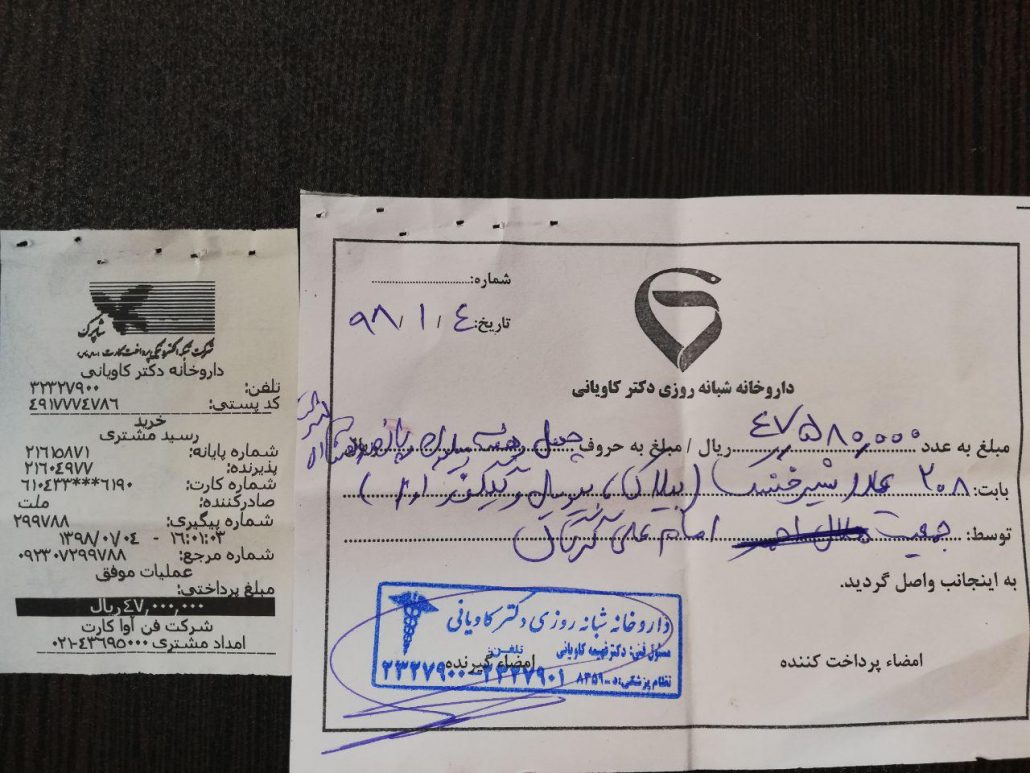 شاپرک
شرکت شبکه الکترونیکی پرداخت کارت
داروخانه دکتر کاویانی
تلفن: ۳۲۳۲۷۹۰۰
کد پستی: ۴۹۱۷۷۷۴۷۸۶
خرید
رسید مشتری
شماره پایانه: ۲۱۶۱۵۸۷۱
پذیرنده: ۲۱۶۰۴۹۷۷
شماره کارت: ۶۱۰۴۳۳***۶۱۹۰
صادرکننده: ملت
شماره پیگیری: ۲۹۹۷۸۸
۱۶:۰۱:۰۳ - ۱۳۹۸/۰۷/۰۴
شماره مرجع: ۰۹۲۳۰۷۲۹۹۷۸۸
عملیات موفق
مبلغ پرداختی:
۴۷,۰۰۰,۰۰۰ ریال
شرکت فن آوا کارت
امداد مشتری ۴۳۶۹۵۰۰۰-۰۲۱
شماره:
تاریخ: ۹۸/۱/۴
داروخانه شبانه روزی دکتر کاویانی
مبلغ به عدد: ۴۷,۵۸۰,۰۰۰ ریال / مبلغ به حروف چهل و هفت میلیون ریال
بابت: ۲۰۸ عدد شیرخشک
توسط: جمعیت امام علی گرگان
به اینجانب واصل گردید.
امضاء پرداخت کننده
امضاء گیرنده
داروخانه شبانه روزی دکتر کاویانی
مسئول فنی: دکتر فهیمه کاویانی
تلفن: ۲۳۲۷۹۰۱ - ۲۳۲۷۹۰۰
نظام پزشکی: